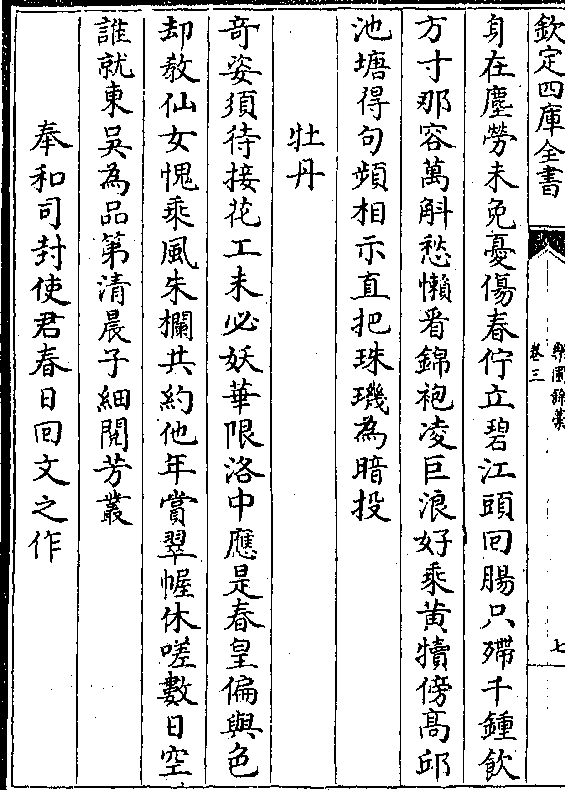 欽定四庫全書
樂圃餘藁
卷三
七
身在塵勞未免憂傷春佇立碧江頭回腸只殢千鍾飲
方寸那容萬斛愁懶看錦袍凌巨浪好乘黃犢傍髙邱
池塘得句頻相示直把珠璣為暗投
牡丹
奇姿須待接花工未必妖華限洛中應是春皇偏與色
却教仙女愧乘風朱欄共約他年賞翠幄休嗟數日空
誰就東吳為品第清晨子細開芳叢
奉和司封使君春日回文之作